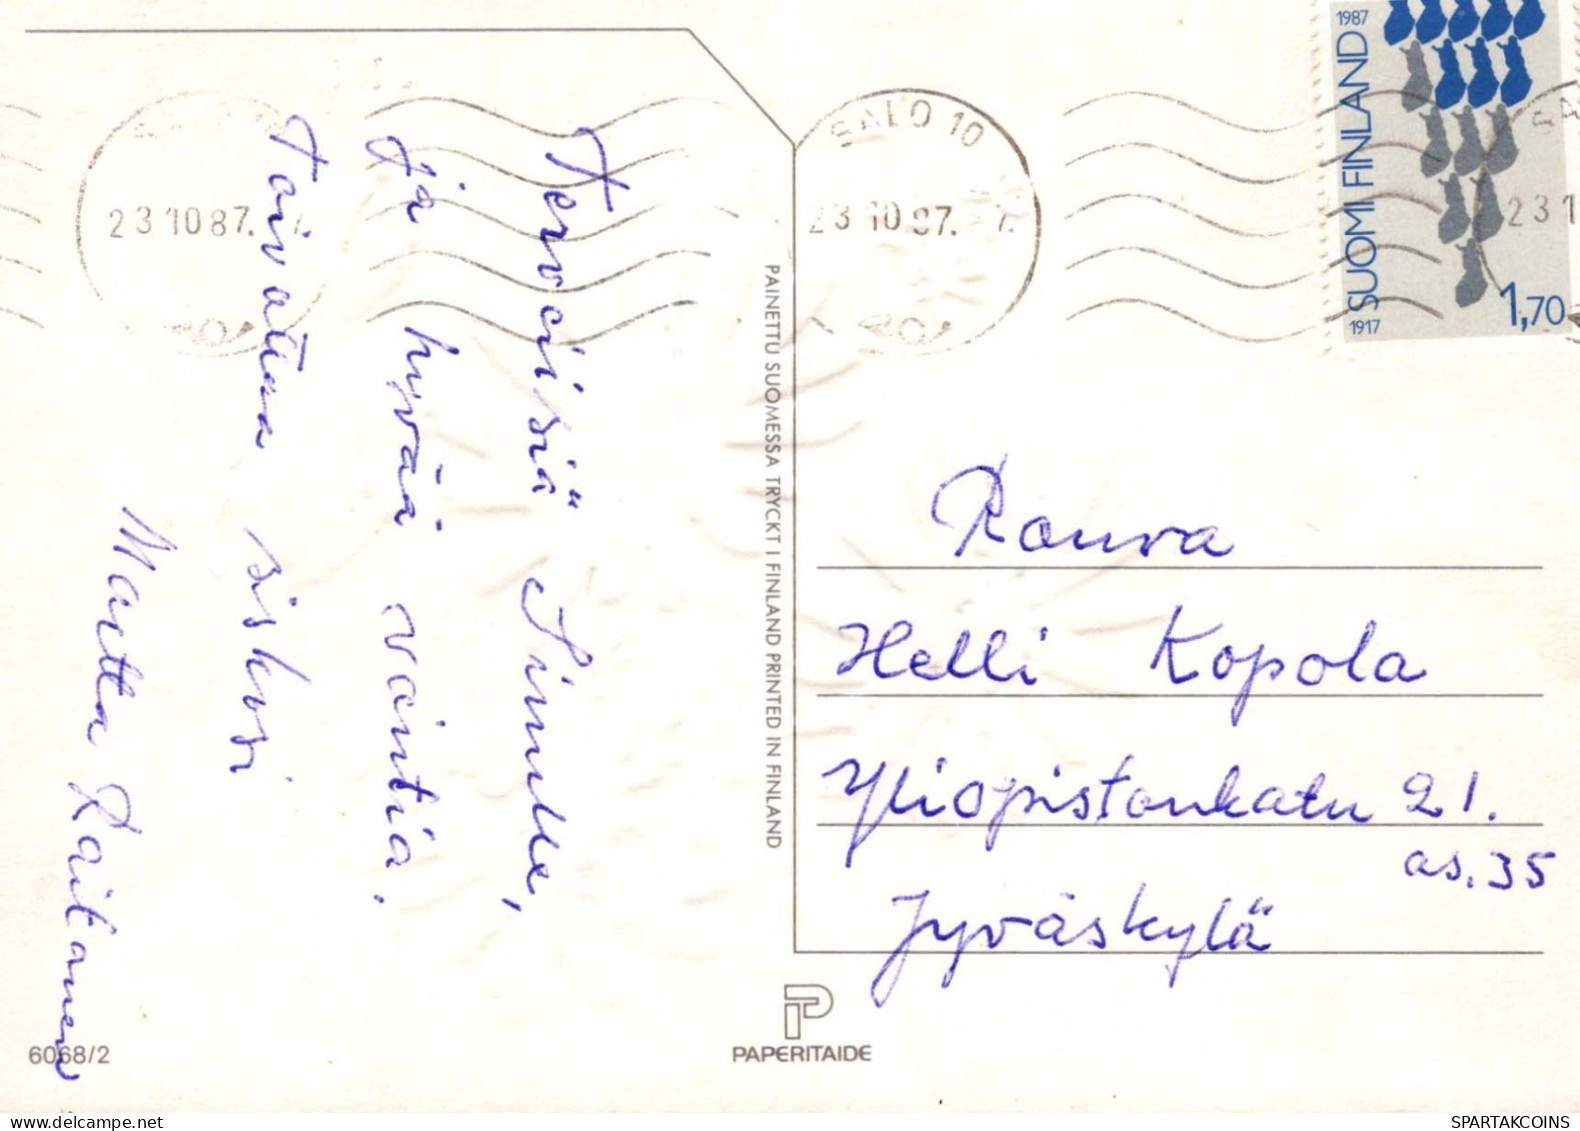 Terveisiä Sinulle,
ja hyvää vointia.
Toivottaa siskosi
Martta Raitanen
6068/2
PAINETTU SUOMESSA TRYCKT I FINLAND PRINTED IN FINLAND
PAPERITAIDE
SALO 10
23.10.87.
23 10 87.
1987
SUOMI FINLAND
1917
1,70
23 1
Rouva
Helli Kopola
Yliopistonkatu 21.
as. 35
Jyväskylä
SPARTAKCOINS
www.delcampe.net